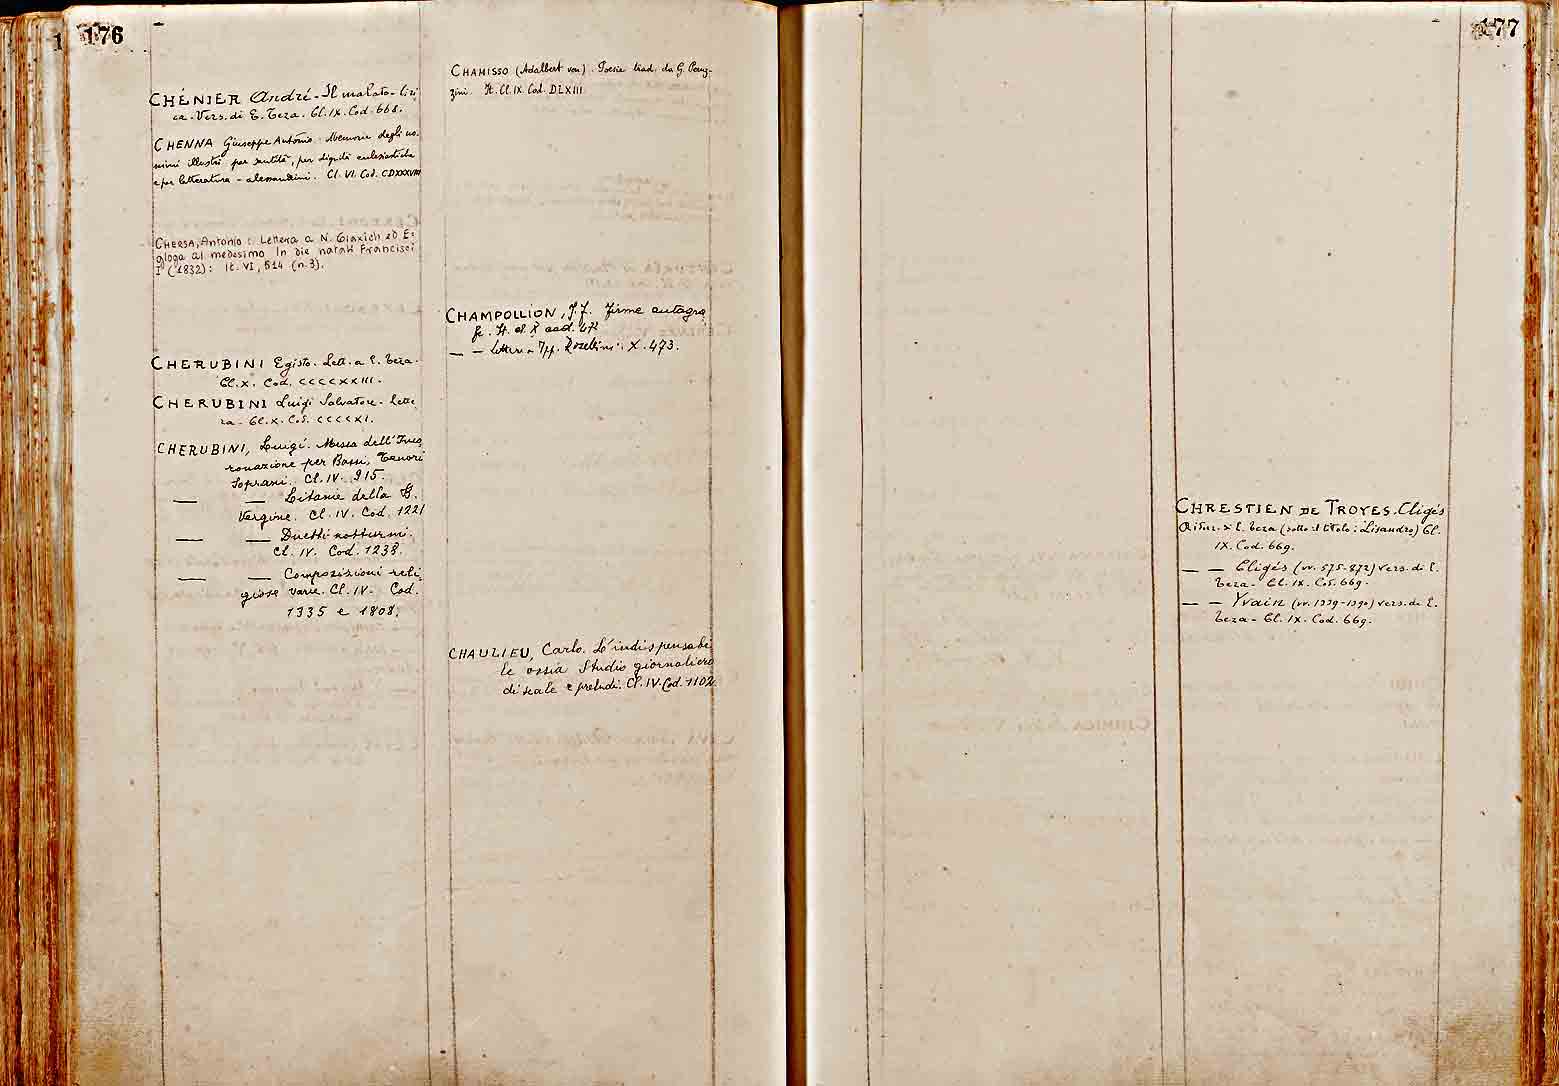 176
CHÉNIER André - Il malato - liri
ca - Vers. di E. Teza. Cl. IX. Cod. 668.
CHENNA Giuseppe Antonio. Memorie degli uo-
mini illustri per santità, per dignità ecclesiastiche
e per letteratura - alessandrini. Cl. VI. Cod. CDXXXVIII
CHERSA, Antonio: Lettera a N. Giaxich ed E-
gloga al medesimo In die natali Francisci
I (1832): It. VI, 514 (n. 3).
CHERUBINI Egisto. Lett. a E. Teza.
Cl. X. Cod. CCCCXXIII.
CHERUBINI Luigi Salvatore. Lette
ra - Cl. X. Cod. CCCCXI.
CHERUBINI, Luigi. Messa dell'Inco
ronazione per Bassi, Tenori
Soprani. Cl. IV. 915.
— — Litanie della B.
Vergine. Cl. IV. Cod. 1221
— — Duetti notturni.
Cl. IV. Cod. 1238.
— — Composizioni reli,
giose varie. Cl. IV. Cod.
1335 e 1808.
CHAMISSO (Adalbert von). Poesie trad. da G. Peruz-
zini. It. Cl. IX. Cod. DLXIII.
CHAMPOLLION, J. f. Firme autogra
fe. It. cl. X cod. 472
— — lettera a Ipp. Rosellini. X. 473.
CHAULIEU, Carlo. L'indispensabi
le ossia Studio giornaliero
di scale e preludi. Cl. IV. Cod. 1102.
177
CHRESTIEN DE TROYES. Cligés
E. Teza (sotto il titolo: Lisandro) Cl.
IX. Cod. 669.
— — Cligés (vv. 575-872) vers. di E.
Teza - Cl. IX. Cod. 669.
— — Yvain (vv. 1339-1390) vers. di E.
Teza - Cl. IX. Cod. 669.